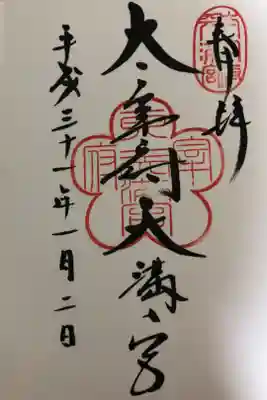 奉拝
太宰府天満宮
平成三十一年一月二日